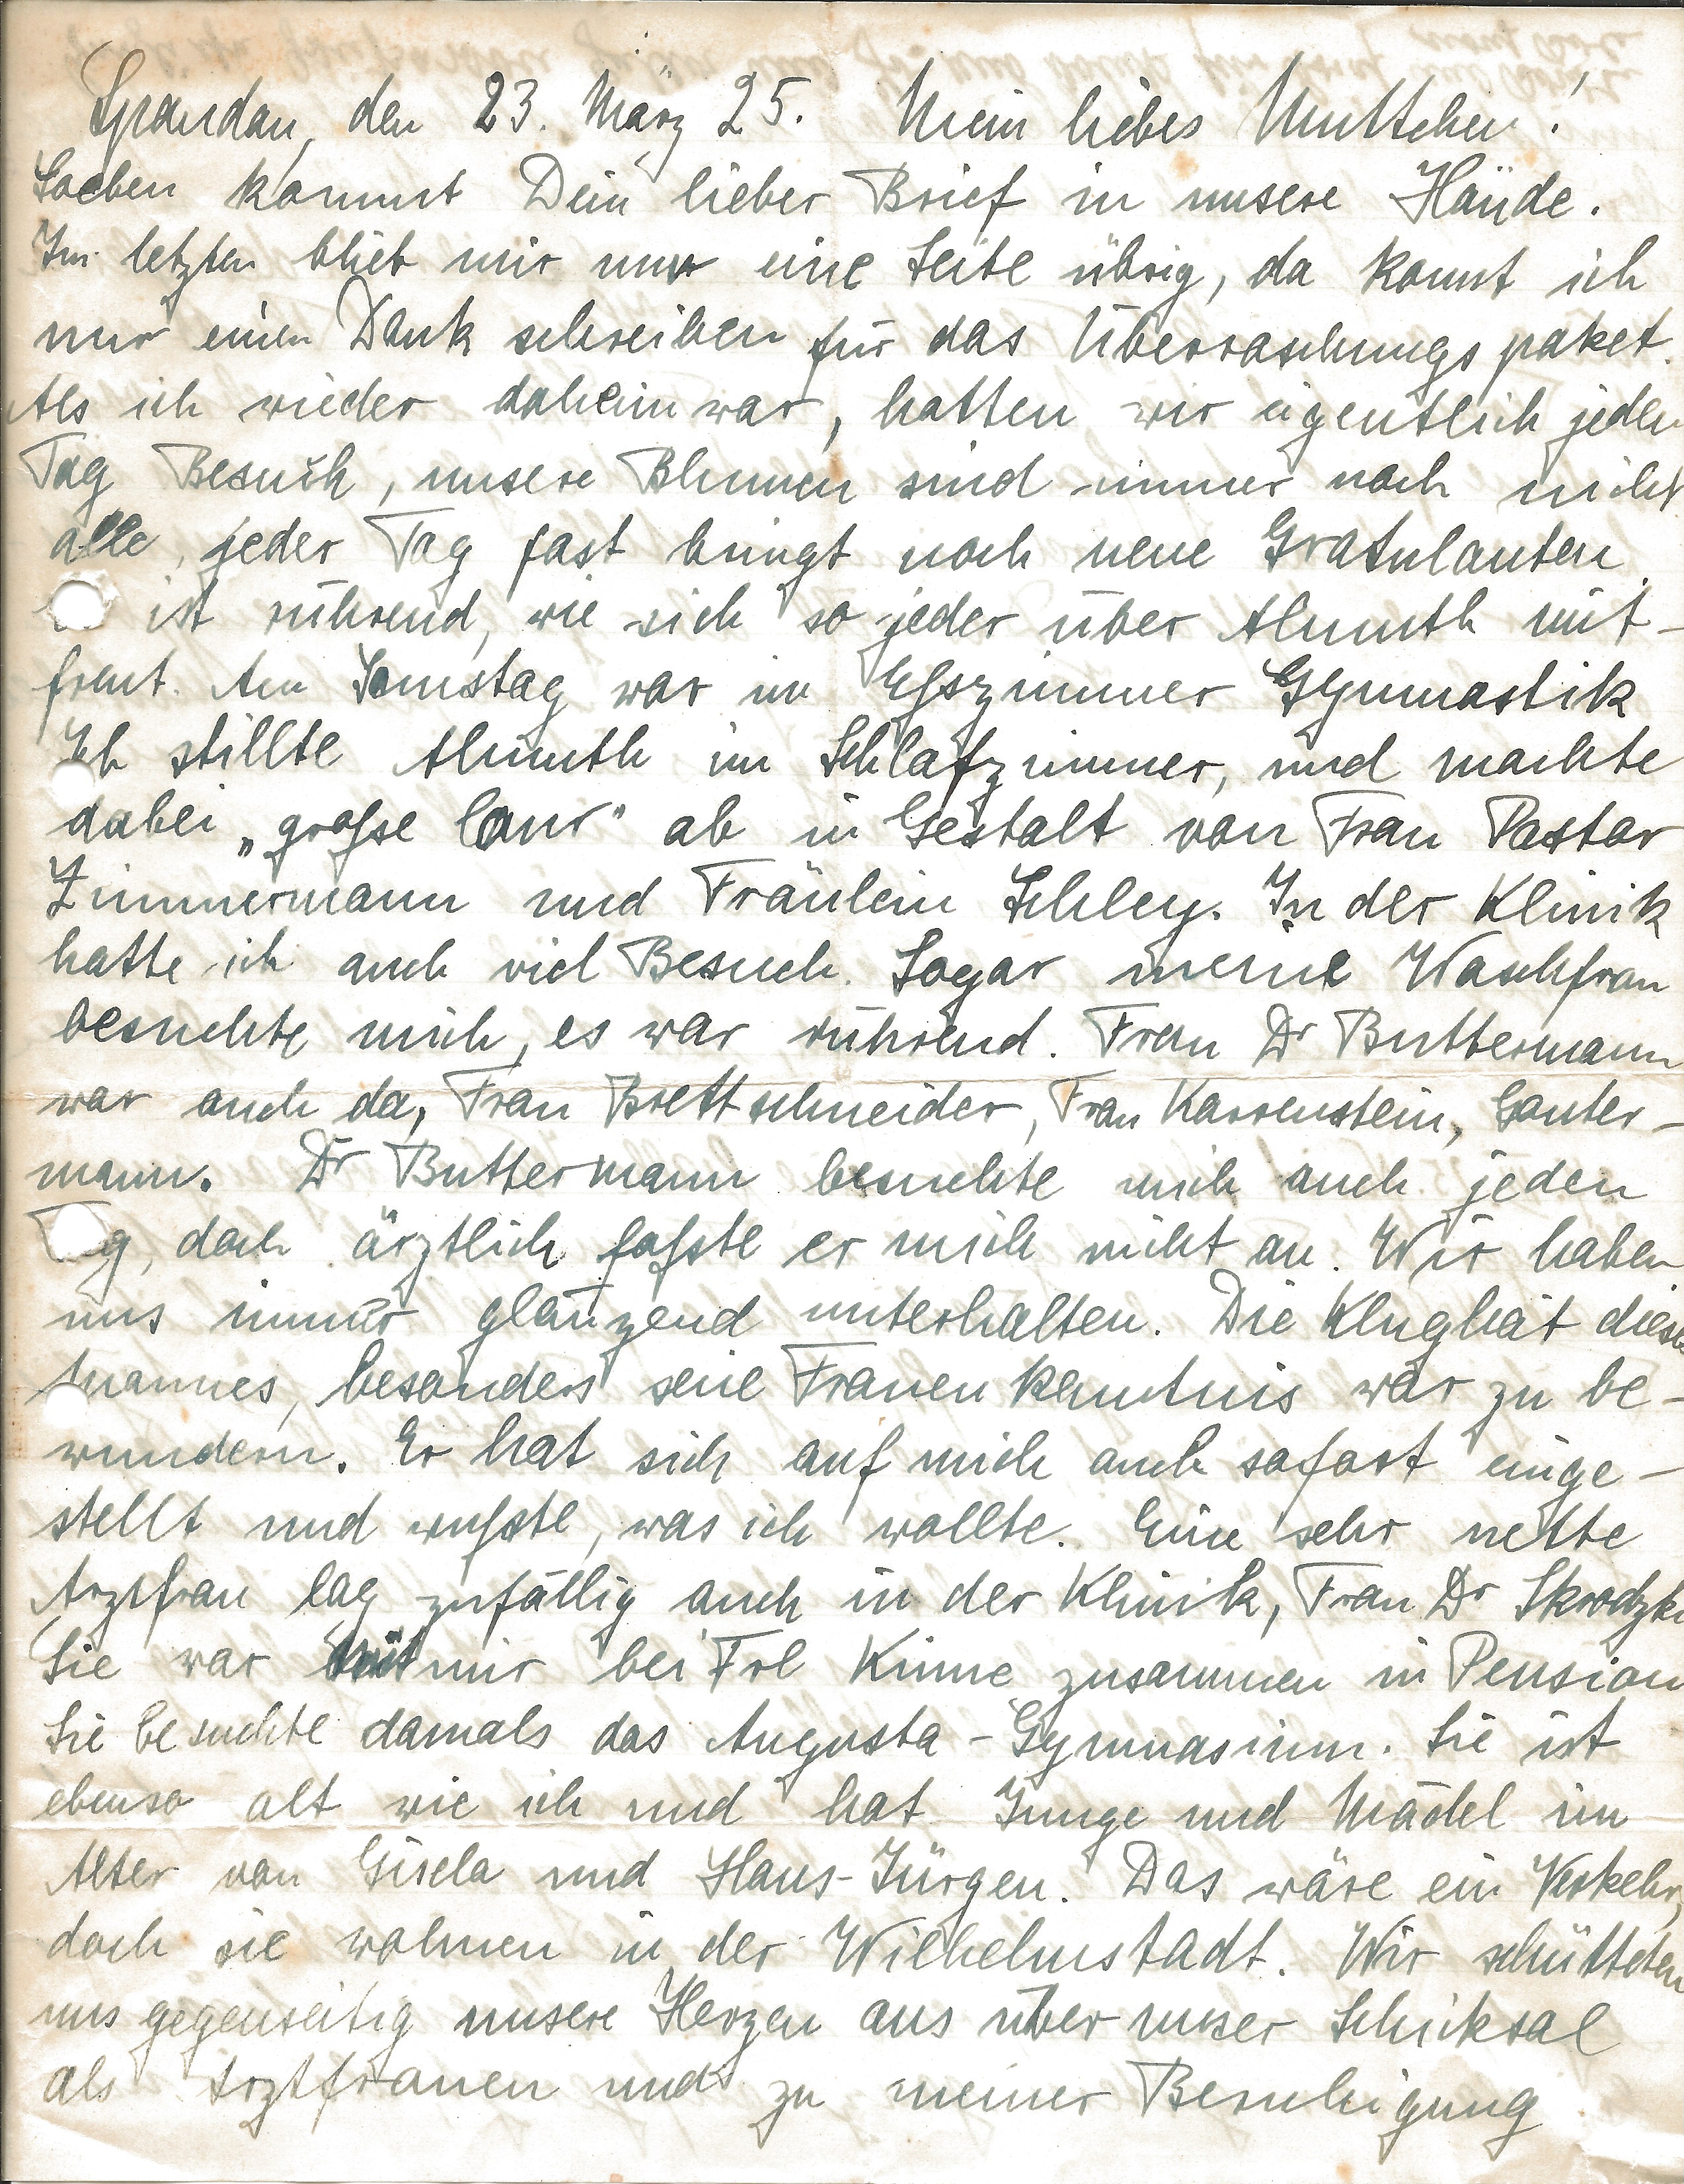 Spandau, den 23. März 25. Mein liebes Muttchen!
Soeben kommt Dein lieber Brief in unsere Hände.
Im letzten blieb mir nur eine Seite übrig, da konnt ich
nur einen Dank schreiben für das Überraschungspaket.
Als ich wieder daheim war, hatten wir eigentlich jeden
Tag Besuch, unsere Blumen sind immer noch nicht
alle, jeder Tag fast bringt noch neue Gratulanten.
ist rührend, wie sich so jeder über Almuth mit-
freut. Am Samstag war im Esszimmer Gymnastik
Ich stillte Almuth im Schlafzimmer, und machte
dabei „große Cour" ab in Gestalt von Frau Pastor
Zimmermann und Fräulein Schley. In der Klinik
hatte ich auch viel Besuch. Sogar meine Waschfrau
besuchte mich, es war rührend. Frau Dr Buttermann
war auch da, Frau Brettschneider, Frau Karrenstein, Ganter-
mann. Dr Buttermann besuchte mich auch jeden
Tag, doch ärztlich faßte er mich nicht an. Wir haben
uns immer glänzend unterhalten. Die Klugheit dieses
Mannes, besonders seine Frauenkenntnis war zu be-
wundern. Er hat sich auf mich auch sofort einge-
stellt und wußte, was ich wollte. Eine sehr nette
Arztfrau lag zufällig auch in der Klinik, Frau Dr Skrodzki
Sie war mit mir bei Frl Kinne zusammen in Pension
Sie besuchte damals das Augusta-Gymnasium. Sie ist
ebenso alt wie ich und hat Junge und Mädel im
Alter von Gisela und Hans-Jürgen. Das wäre ein Verkehr,
doch sie wohnen in der Wilhelmstadt. Wir schütteten
uns gegenseitig unsere Herzen aus über unser Schicksal
als Arztfrauen und zu meiner Beruhigung